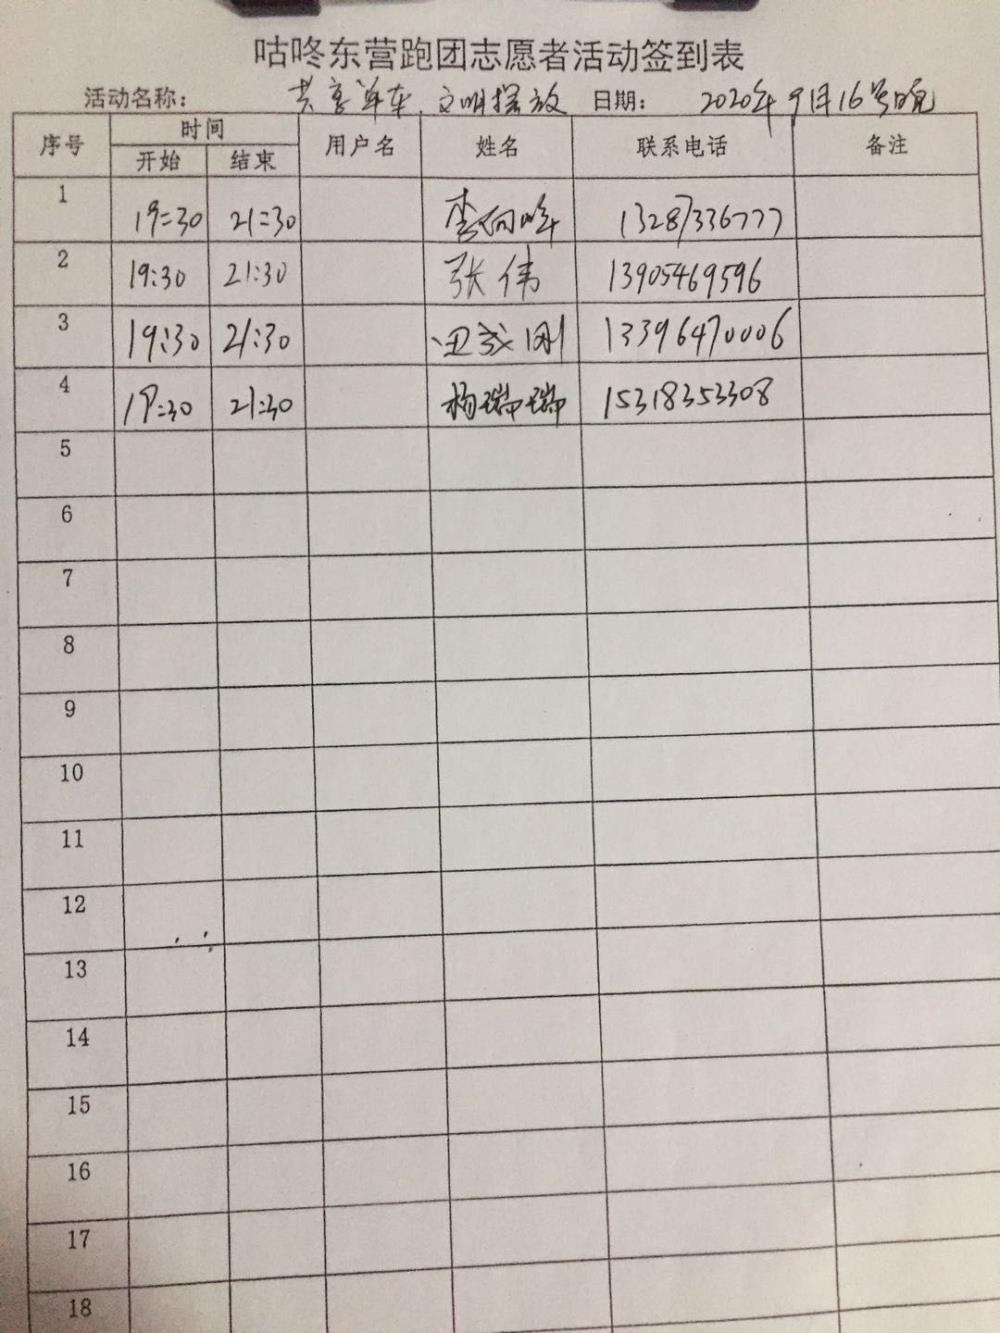 咕咚东营跑团志愿者活动签到表
活动名称: 共享单车、文明摆放 日期: 2020年9月16号晚
序号 时间 用户名 姓名 联系电话 备注
开始 结束
1 19:30 21:30 李向峰 13287336777
2 19:30 21:30 张伟 13905469596
3 19:30 21:30 刚 13396470006
4 19:30 21:30 杨瑞瑞 15318353308
5
6
7
8
9
10
11
12
13
14
15
16
17
18